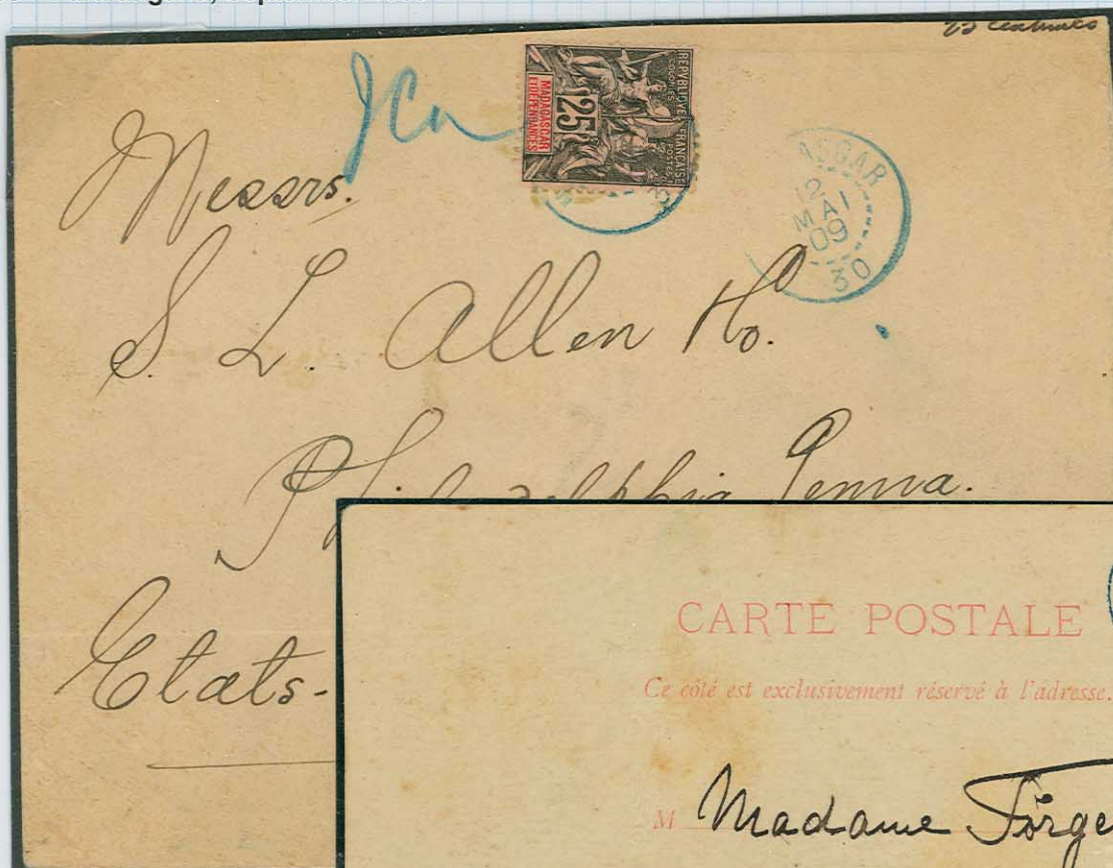 25 centimes
REPUBLIQUE FRANÇAISE
COLONIES POSTES
25
MADAGASCAR
ET DÉPENDANCES
ASCAR
12
MAI
09
30
Messrs.
S. L. Allen Ho.
Philadelphia Penna.
Etats-
CARTE POSTALE
Ce côté est exclusivement réservé à l'adresse.
M Madame